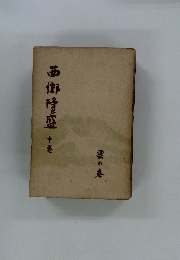 西郷隆盛
十巻
雲の巻